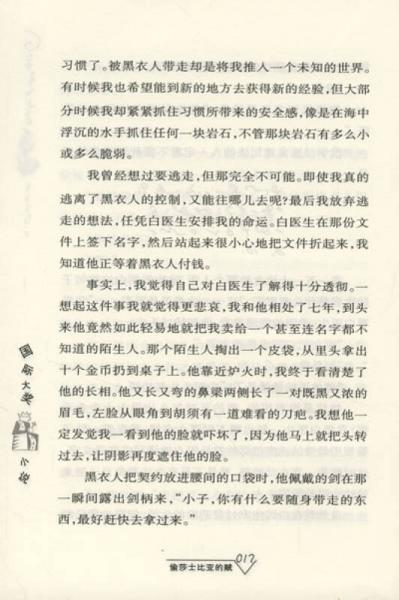 习惯了。被黑衣人带走却是将我推入一个未知的世界。
有时候我也希望能到新的地方去获得新的经验，但大部
分时候我却紧紧抓住习惯所带来的安全感，像是在海中
浮沉的水手抓住任何一块岩石，不管那块岩石有多么小
或多么脆弱。
我曾经想过要逃走，但那完全不可能。即使我真的
逃离了黑衣人的控制，又能往哪儿去呢？最后我放弃逃
走的想法，任凭白医生安排我的命运。白医生在那份文
件上签下名字，然后站起来很小心地把文件折起来，我
知道他正等着黑衣人付钱。
事实上，我觉得自己对白医生了解得十分透彻。一
想起这件事我就觉得更悲哀，我和他相处了七年，到头
来他竟然如此轻易地就把我卖给一个甚至连名字都不
知道的陌生人。那个陌生人掏出一个皮袋，从里头拿出
十个金币扔到桌子上。他靠近炉火时，我终于看清楚了
他的长相。他又长又弯的鼻梁两侧长了一对既黑又浓的
眉毛，左脸从眼角到胡须有一道难看的刀疤。我想他一
定发觉我一看到他的脸就吓坏了，因为他马上就把头转
过去，让阴影再度遮住他的脸。
黑衣人把契约放进腰间的口袋时，他佩戴的剑在那
一瞬间露出剑柄来，“小子，你有什么要随身带走的东
西，最好赶快去拿过来。”
国际大奖
小
偷莎士比亚的贼
012